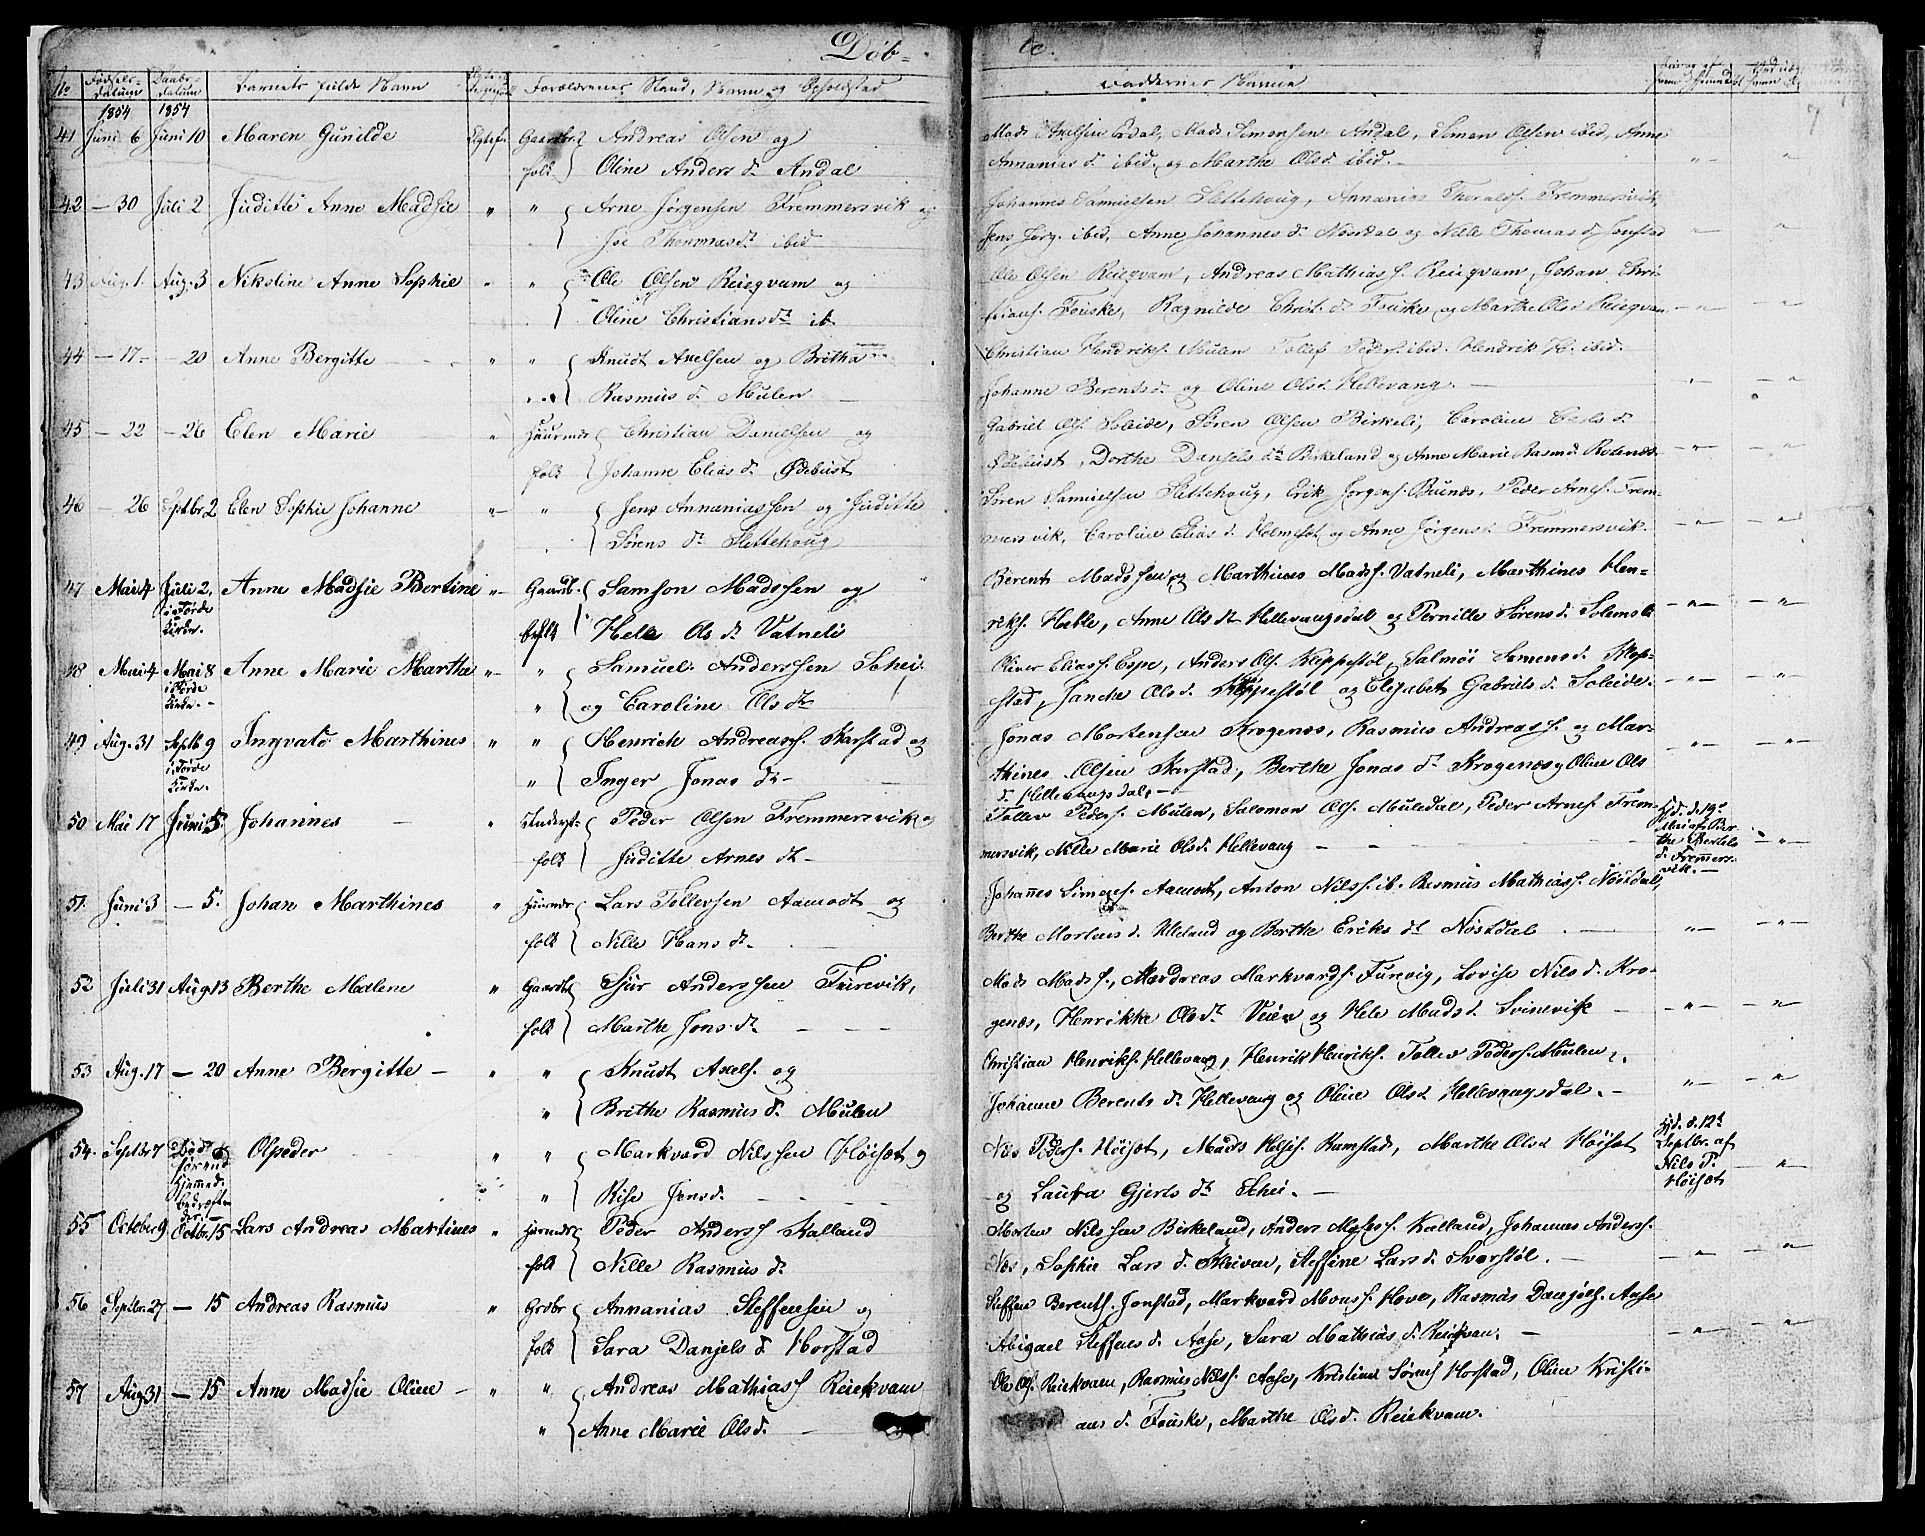 Døb- te.
No Fødsels-datum Daabs-datum Barnets fulde Navn Forældrenes Stand, Navn og Opholdsted Faddernes Navne
1854 1854
7
41 Juni 6 Juni 10 Maren Gunilde Ægtef. Gaardbr. Andreas Olsen og
folk Oline Anders d. Andal
Mads Axelsen Ardal, Mads Simonsen Andal, Simon Olsen ibid, Anne
Annanias d. ibid, og Marthe Olsd. ibid. -
42 - 30 Juli 2 Juditte Anne Madsie " " Arne Jørgensen Fremmersvik og
Joe Thommesdr. ibid
Johannes Samuelsen Slettehoug, Annanias Thoralds. Fremmersvik,
Jens Jørg. ibid, Anne Johannes d. Nosdal og Nille Thomas d. Jonstad
43 Aug. 1. Aug. 3 Nikoline Anne Sophie " " Ole Olsen Reieqvam og
Oline Christiansdr. ib
Ole Olsen Reieqvam, Andreas Mathiass. Reieqvam, Johan Chri-
stians. Fouske, Ragnilde Christ. d. Fouske og Marthe Olsd Reieqvam
44 - 17- - 20 Anne Bergitte " " Knudt Axelsen og Britha
Rasmus d. Mulen
Christian Hendriks. Mulen Tollef Peders. ibid. Hendrik H. ibid.
Johanne Berentsd. og Oline Olsd. Hellevang. -
45 - 22 - 26 Elen Marie " Huusmds Christian Danielsen og
folk Johanne Elias d. Ødebust
Gabriel Ols. Soleide, Søren Olsen Birkeli, Caroline Carls d.
Ødebust, Dorthe Danjels dtr. Birkeland og Anne Marie Rasm.d. Rotenæs
46 - 26 Sptbr 2 Elen Sophie Johanne " " Jens Annaniassen og Juditte
Sørens dr. Slettehoug
Søren Samuelsen Slettehoug, Erik Jørgens. Buenæs, Peder Arnes. Frem-
mersvik, Caroline Elias d. Holmset og Anne Jørgensd. Fremmersvik.
47 Mai 4 Juli 2, Anne Madsie Bertine " Gaardb. Samson Madssen og
i Førde
Kirke. folk Helle Ols d. Vatneli
Berent Madssen og Marthines Mads. Vatneli, Marthines Hen-
riks. Hatle, Anne Ols dr Hellevangsdal og Pernille Sørens d. Solemsli
48 Mai 4 Mai 8 Anne Marie Marthe " " Samuel Anderssen Schei
i Førde
Kirke. - " og Caroline Ols dr
Oliver Eliass. Espe, Anders Ols. Klippestøl, Salmøi Simensd. Skop-
stad, Jancke Olsd. Klippestøl og Elisabet Gabriels d. Soleide.
49 Aug. 31 Septb 9 Ingvald Marthines " " Henrich Andreass. Karstad og
i Førde
Kirke. " Inger Jonas dr-
Jonas Mortensen Krogenæs, Rasmus Andreass. og Mar-
thines Olsen Karstad, Berthe Jonas dr Krogenæs og Oline Ols
d. Hellevangsdal. -
50 Mai 17 Juni 5 Johannes - " Underst- Peder Olsen Fremmersvik og
folk Juditte Arnes dr -
Tollev Peders. Mulen, Salomon Ols. Muledal, Peder Arnes. Frem-
mersvik, Nille Marie Olsd. Hellevang - -
Hjd. d. 19de
Mai af Ber-
the Bertels
d. Fremers-
vik. -
51. Juni 3 - 5. Johan Marthines " Huusmds Lars Tollevsen Aamodt og
folk Nille Hans dr. -
Johannes Simons. Aamodt, Anton Nilss. ib. Rasmus Mathiass. Nøstdal,
Berthe Mortens d. Ulleland og Berthe Eriks dr Nøstdal -
52 Juli 31 Aug. 13 Berthe Malene " Gaardb. Sjur Anderssen Furevik,
folk Marthe Jons. dr. - - -
Mads Mads s., Mardreas Markvards. Furevig, Lovise Nils d. Kro-
genæs, Henrikke Ols dr. Veien og Hele Mads d. Svinevik -
53 Aug. 17 - 20 Anne Bergitte - " " Knudt Axels. og
" Brithe Rasmus d. Mulen
Christian Henriks. Hellevang, Henrik Henriks. Tollev Peders. Mulen,
Johanne Berents dr. Hellevang og Oline Olsd Hellevangsdal. -
54. Septbr 7 Død
Olpeder " " Markvard Nilssen Høiset og
Hjemmed.
" Rise Jensd. - - -
Nes Peders. Høiset, Mads Helges. Ramstad, Marthe Olsd Høiset
og Laura Gjerts dr. Schei. -
Hjd. d. 12te
Septbr. af
Nils P.
Høiset
55 October 9 Octbr. 15 Lars Andreas Martines " Huusmds Peder Anderss Kalland
folk Nille Rasmus d.
Morten Nilssen Birkeland, Anders Moses. Kalland, Johannes Anderss.
Næs, Sophie Lars d. Kleiven, Steffine Lars d. Sværstøl. -
56 Septbr. 27 - 15 Andreas Rasmus " Grdbr Annanias Steffensen og
folk Sara Danjels d. Horstad
Steffen Berents. Jonstad, Markvard Monss. Hove, Rasmus Danjels. Aase
Abigael Steffens d. Aase, Sara Mathias d. Reiekvam. -
57 Aug 31 - 15 Anne Madsie Oline - " " Andreas Mathiass Reiekvam
" Anne Marie Ols d. -
Ole Ols. Reiekvam, Rasmus Nilss. Aase, Kristine Sørens Horstad, Oline Kristi-
ans d. Fouske, Marthe Ols d. Reiekvam.